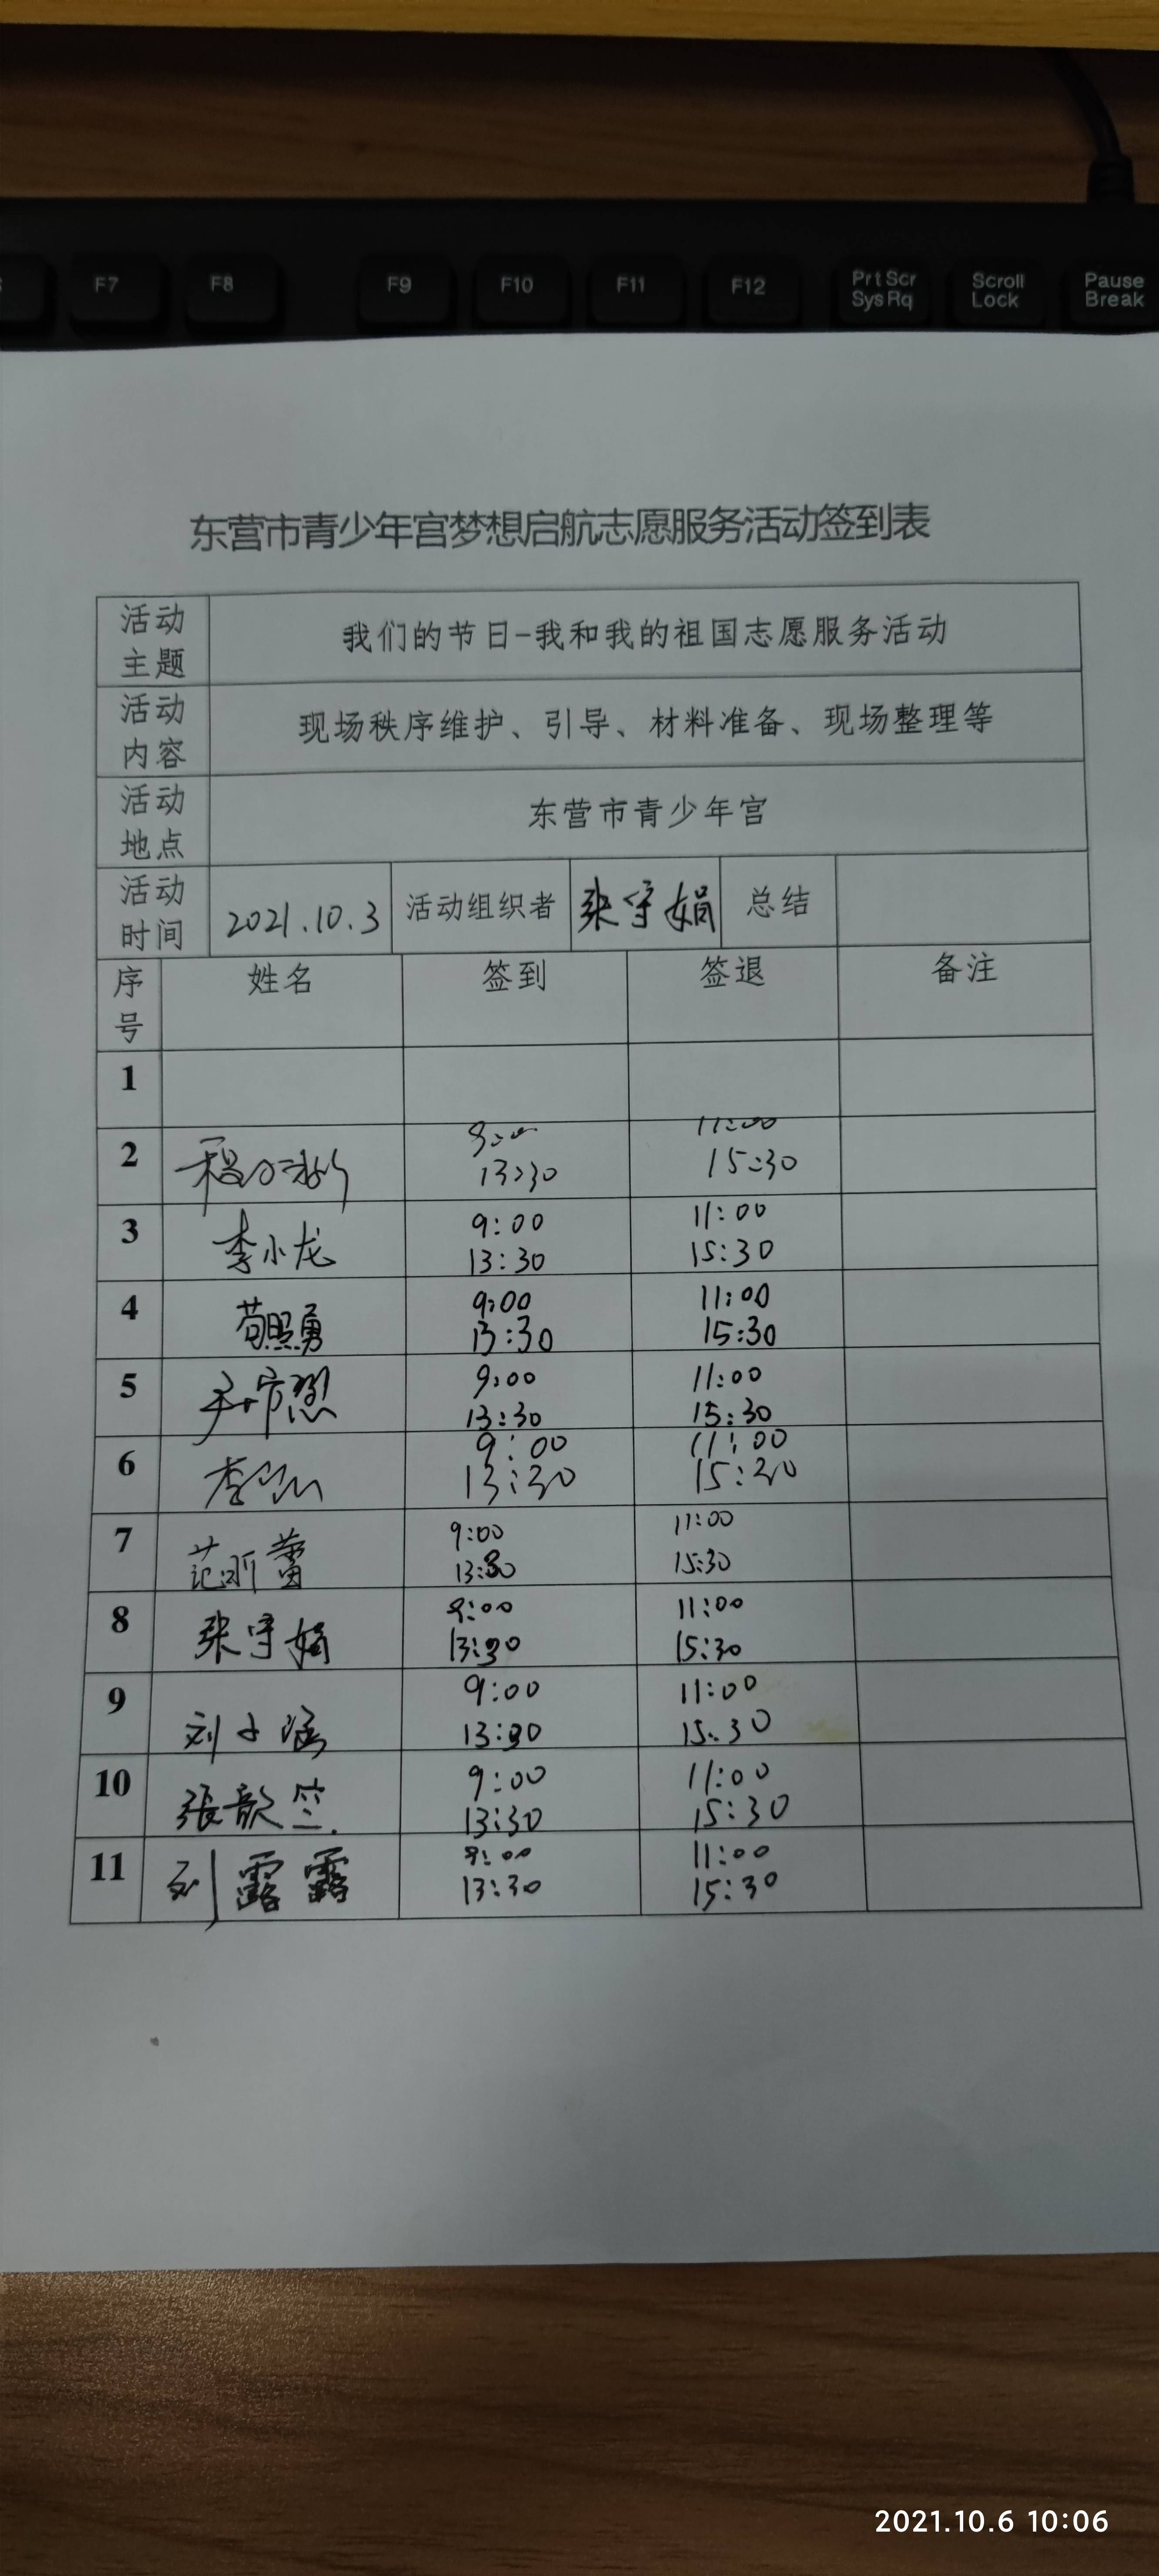 F7 F8 F9 F10 F11 F12 PrtScr SysRq Scroll Lock Pause Break
东营市青少年宫梦想启航志愿服务活动签到表
活动主题 我们的节日-我和我的祖国志愿服务活动
活动内容 现场秩序维护、引导、材料准备、现场整理等
活动地点 东营市青少年宫
活动时间 2021.10.3 活动组织者 张守娟 总结
序号 姓名 签到 签退 备注
1
2 11:00
13:30 15:30
3 李小龙 9:00 11:00
13:30 15:30
4 苟照勇 9:00 11:00
13:30 15:30
5 9:00 11:00
13:30 15:30
6 9:00 11:00
13:30 15:30
7 范昕蕾 9:00 11:00
13:30 15:30
8 张守娟 9:00 11:00
13:30 15:30
9 刘子涵 9:00 11:00
13:30 15.30
10 張歆竺 9:00 11:00
13:30 15:30
11 刘露露 9:00 11:00
13:30 15:30
2021.10.6 10:06